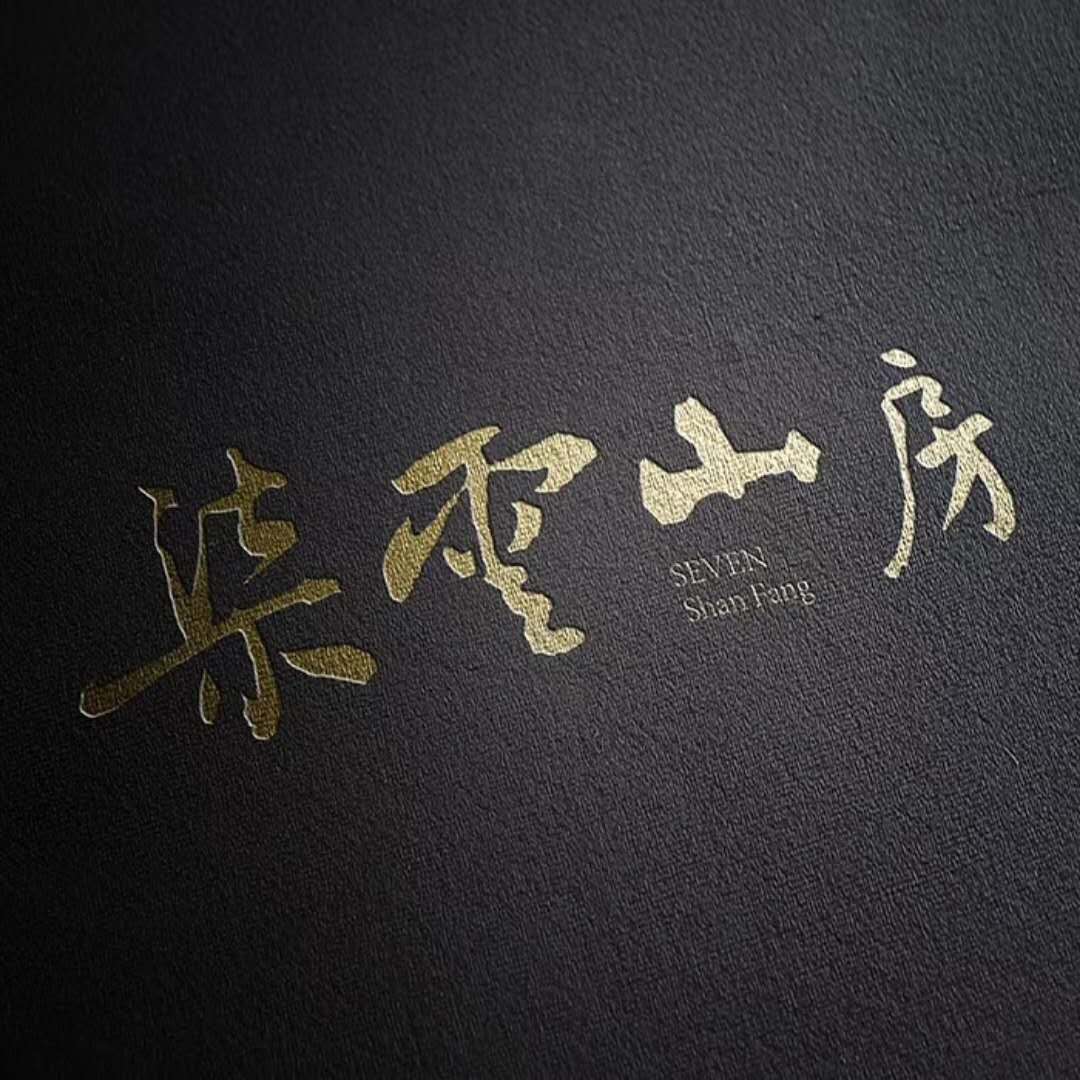 柒雲山房
SEVEN
Shan Fang